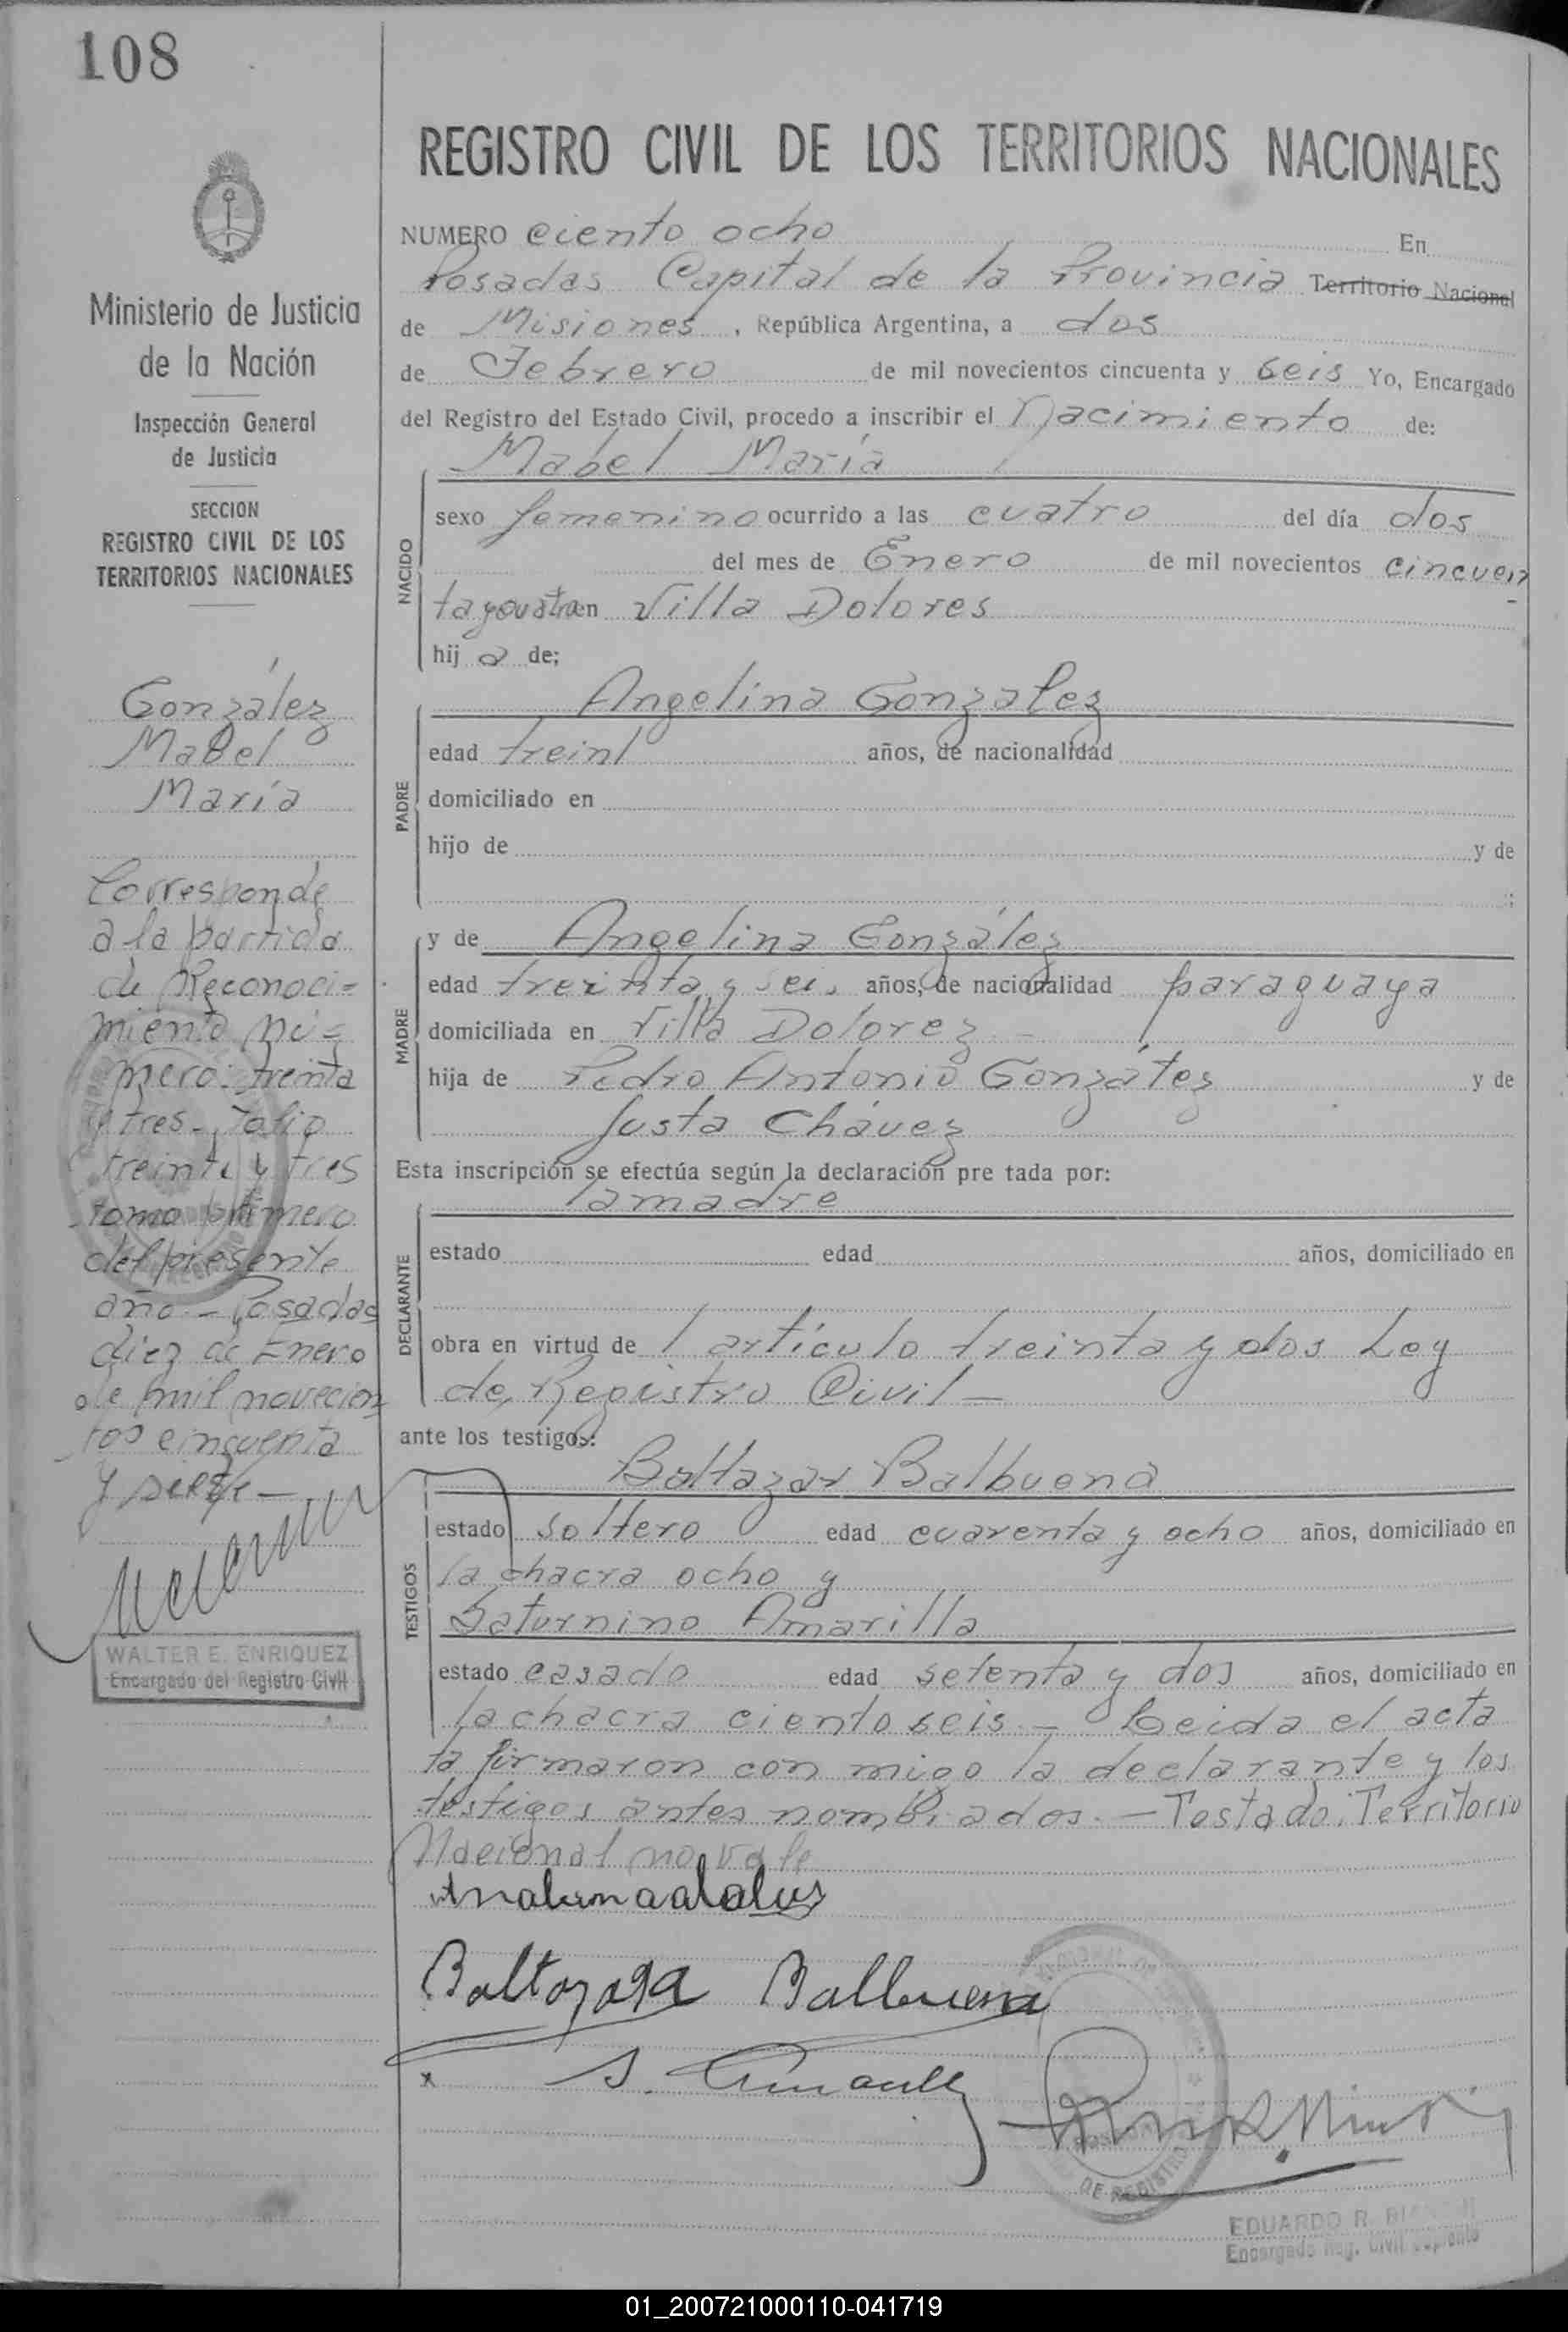 108
REGISTRO CIVIL DE LOS TERRITORIOS NACIONALES
NUMERO ciento ocho En
Posadas Capital de la Provincia Territorio Nacional
de Misiones, República Argentina, a dos
de Febrero de mil novecientos cincuenta y seis Yo, Encargado
del Registro del Estado Civil, procedo a inscribir el nacimiento de:
Mabel María
NACIDO
sexo femenino ocurrido a las cuatro del día dos
del mes de Enero de mil novecientos cincuen
ta y cuatro en Villa Dolores
hij a de;
PADRE
Angelina Gonzalez
edad treint años, de nacionalidad
domiciliado en
hijo de y de
MADRE
y de Angelina González
edad treinta y seis años, de nacionalidad paraguaya
domiciliada en Villa Dolorez
hija de Pedro Antonio González y de
Justa Chávez
Esta inscripción se efectúa según la declaración pre tada por:
DECLARANTE
la madre
estado edad años, domiciliado en
obra en virtud de l artículo treinta y dos Ley
de Registro Civil —
ante los testigos:
TESTIGOS
Baltazar Balbuena
estado soltero edad cuarenta y ocho años, domiciliado en
la chacra ocho y
Saturnino Amarilla
estado casado edad setenta y dos años, domiciliado en
la chacra ciento seis — Leida el acta
la firmaron con migo la declarante y los
testigos antes nombrados. — Testado: Territorio
Nacional no vale
Baltazara Balbuena
x S.
DE REGISTRO
EDUARDO R.
Encargado Reg. Civil Suplente
Ministerio de Justicia
de la Nación
Inspección General
de Justicia
SECCION
REGISTRO CIVIL DE LOS
TERRITORIOS NACIONALES
González
Mabel
María
Corresponde
a la partida
de Reconoci=
miento nú=
mero: treinta
y tres - folio
treinta y tres
tomo primero
del presente
año - Posadas
diez de Enero
de mil novecien
tos cincuenta
y siete —
WALTER E. ENRIQUEZ
Encargado del Registro Civil
01_200721000110-041719